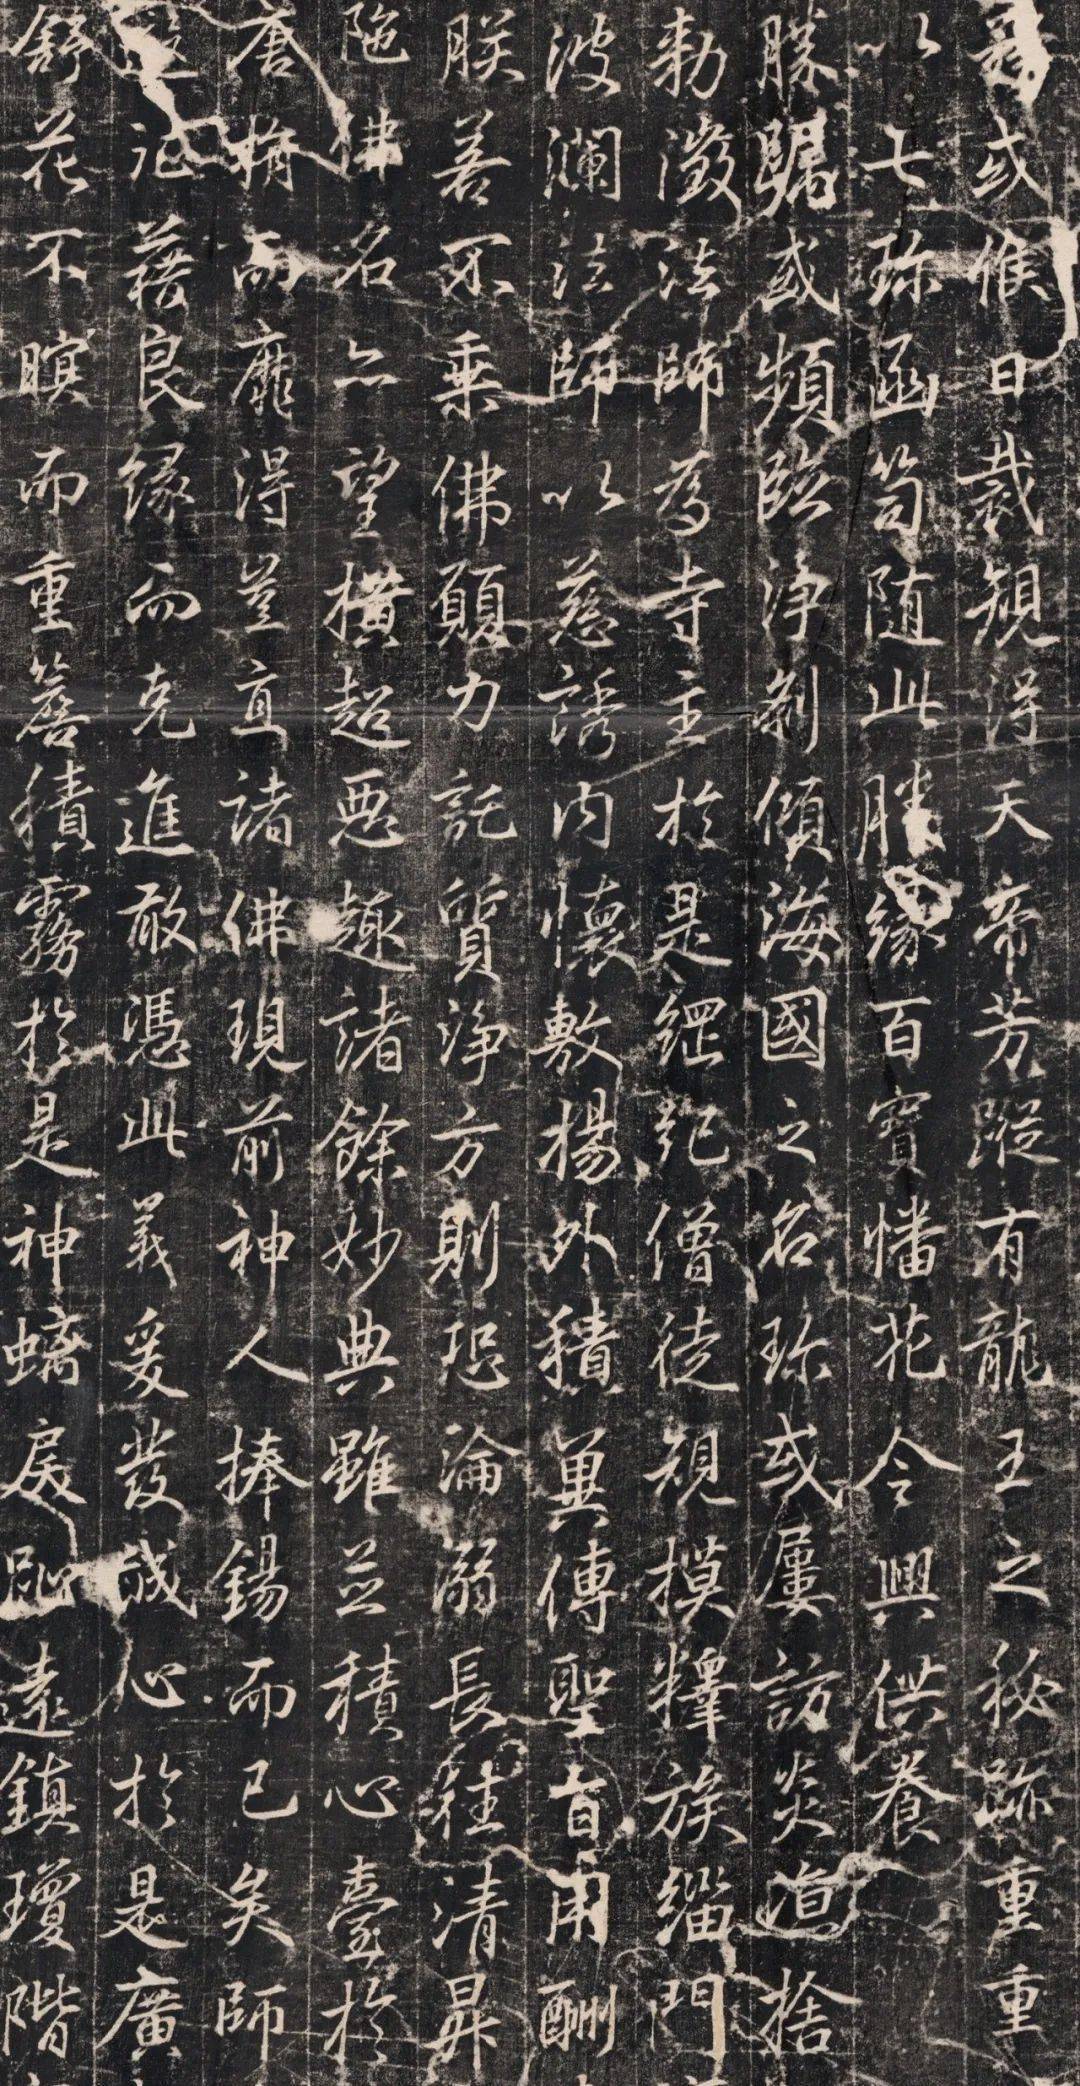 或候日裁規得天帝芳蹤有龍王之秘跡重重
七珎函笥随此勝緣百寶幡花令興供養
勝躅或頻臨淨剎傾海國之名珎或屢訪炎涼捨
勅澂法師為寺主於是綱紀僧徒規摸釋族緇門
波瀾法師以慈誘內懷敷揚外積冀傳聖旨用酬
朕若不乘佛願力託質淨方則恐淪溺長往清昇
陁佛名亦望橫超惡趣諸餘妙典雖並積心臺於
膺而靡得豈直諸佛現前神人捧錫而已矣師
托藉良緣而克進敢憑此義爰發誠心於是廣
舒花不暝而重簷積霧於是神螭戾趾遠鎮瓊階